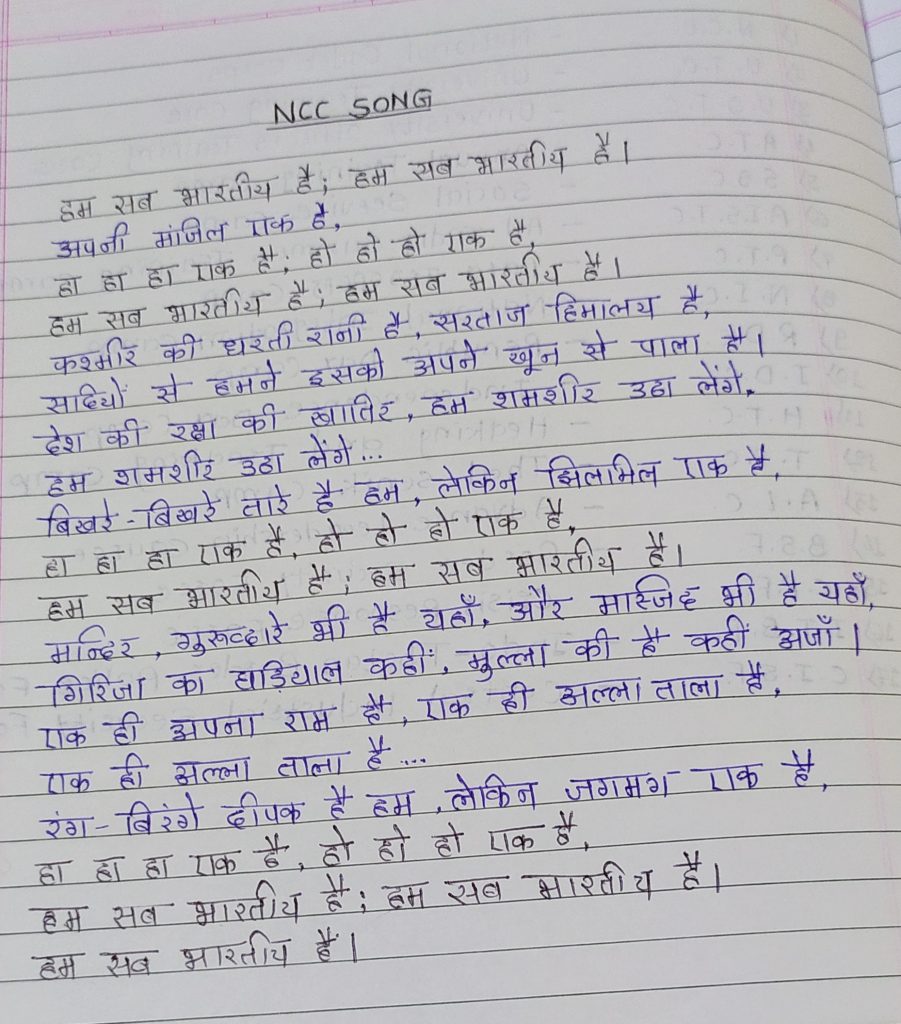 NCC SONG
हम सब भारतीय है; हम सब भारतीय है।
अपनी मंजिल एक है,
हा हा हा एक है; हो हो हो एक है,
हम सब भारतीय है; हम सब भारतीय है।
कश्मीर की धरती रानी है, सरताज हिमालय है,
सदियों से हमने इसको अपने खून से पाला है।
देश की रक्षा की खातिर, हम शमशीर उठा लेंगे,
हम शमशीर उठा लेंगे...
बिखरे-बिखरे तारे है हम, लेकिन झिलमिल एक है,
हा हा हा एक है, हो हो हो एक है,
हम सब भारतीय है; हम सब भारतीय है।
मन्दिर, गुरूद्वारे भी है यहाँ, और मस्जिद भी है यहाँ,
गिरिजा का घड़ियाल कहीं, मुल्ला की है कहीं अजाँ।
एक ही अपना राम है, एक ही अल्ला ताला है,
एक ही अल्ला ताला है...
रंग-बिरंगे दीपक है हम, लेकिन जगमग एक है,
हा हा हा एक है, हो हो हो एक है,
हम सब भारतीय है; हम सब भारतीय है।
हम सब भारतीय हैं।